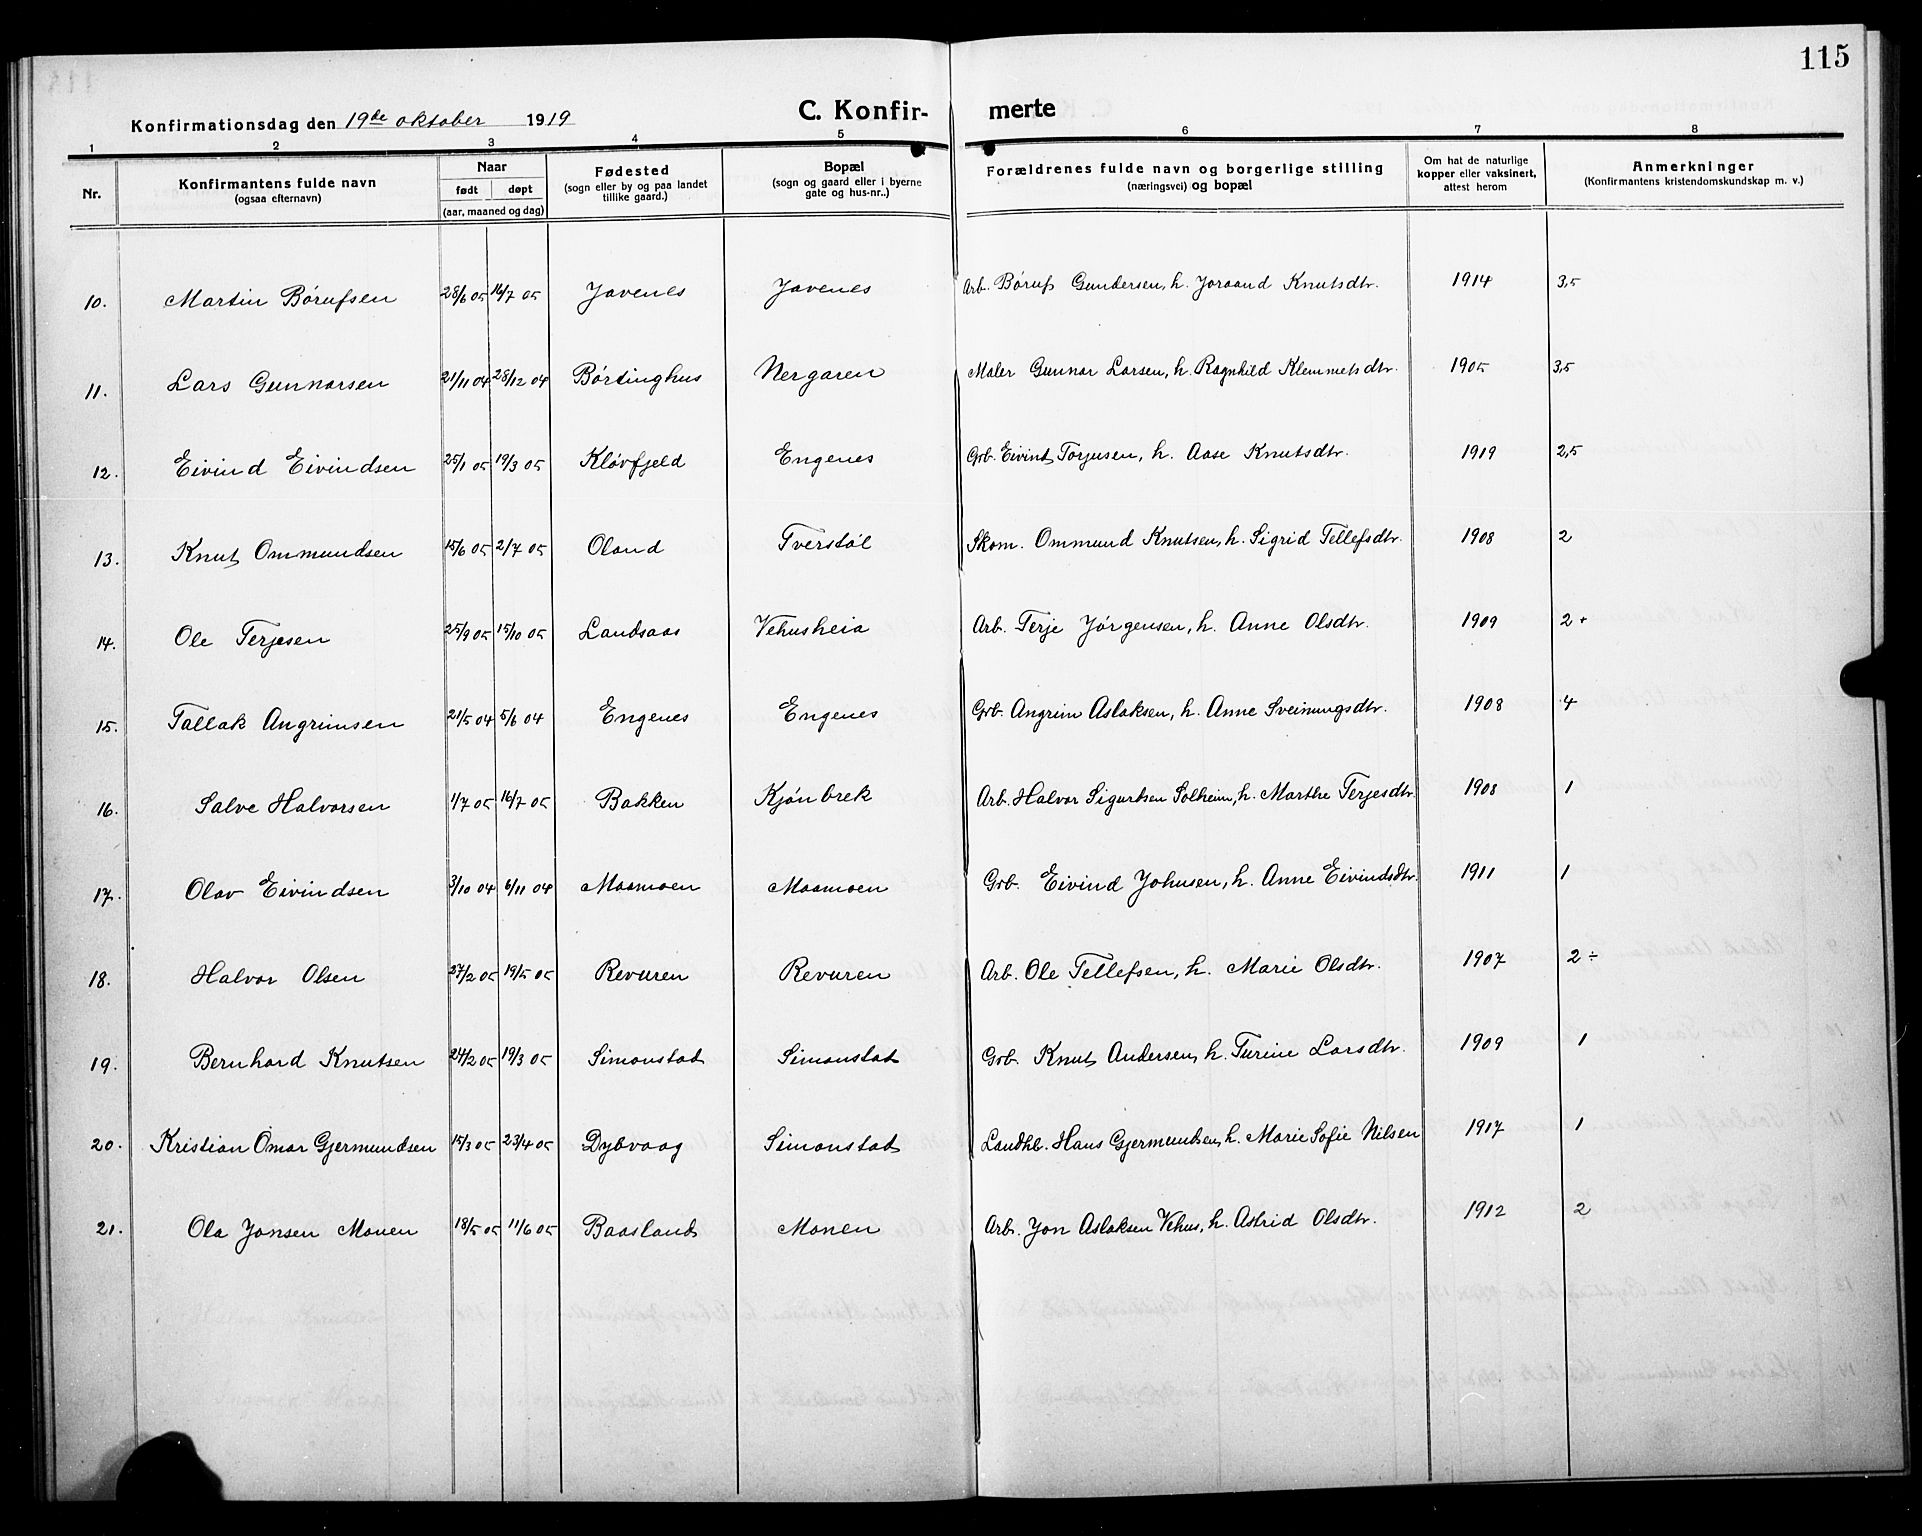 115
Konfirmationsdag den 19de oktober 1919 C. Konfir- merte
1 2 3 4 5 6 7 8
Nr. Konfirmantens fulde navn (ogsaa efternavn) Naar født døpt (aar, maaned og dag) Fødested (sogn eller by og paa landet tillike gaard.) Bopæl (sogn og gaard eller i byerne gate og hus-nr..) Forældrenes fulde navn og borgerlige stilling (næringsvei) og bopæl Om hat de naturlige kopper eller vaksinert, attest herom Anmerkninger (Konfirmantens kristendomskundskap m. v.)
10. Martin Børufsen 28/6 05 16/7 05 Javenes Javenes Arb. Børuf Gundersen, h. Joraand Knutsdtr. 1914 3,5
11. Lars Gunnarsen 21/11 04 28/12 04 Børtinghus Nergaren Maler Gunnar Larsen, h. Ragnhild Klemmetsdtr. 1905 3,5
12. Eivind Eivindsen 25/1 05 19/3 05 Kløvfjeld Engenes Grb. Eivint Torjusen, h. Aase Knutsdtr. 1919 2,5
13. Knut Ommundsen 15/6 05 2/7 05 Oland Tverstøl Skom. Ommund Knutsen, h. Sigrid Tellefsdtr. 1908 2
14. Ole Terjesen 25/9 05 15/10 05 Landsaas Vehusheia Arb. Terje Jørgensen, h. Anne Olsdtr. 1909 2+
15. Tallak Angrimsen 21/5 04 5/6 04 Engenes Engenes Grb. Angrim Aslaksen, h. Anne Sveinungsdtr. 1908 4
16. Salve Halvorsen 1/7 05 16/7 05 Bakken Kjønbrek Arb. Halvor Sigurdsen Solheim, h. Marthe Terjesdtr. 1908 1
17. Olav Eivindsen 3/10 04 6/11 04 Maamoen Maamoen Grb. Eivind Johnsen, h. Anne Eivindsdtr. 1911 1
18. Halvor Olsen 27/2 05 19/5 05 Revuren Revuren Arb. Ole Tellefsen, h. Marie Olsdtr. 1907 2÷
19. Bernhard Knutsen 24/2 05 19/3 05 Simonstad Simonstad Grb. Knut Andersen, h. Turine Larsdtr. 1909 1
20. Kristian Omar Gjermundsen 15/3 05 23/4 05 Dybvaag Simonstad Landhb. Hans Gjermundsen, h. Marie Sofie Nilsen 1917 1
21. Ola Jonsen Monen 18/5 05 11/6 05 Baasland Monen Arb. Jon Aslaksen Vehus, h. Astrid Olsdtr. 1912 2